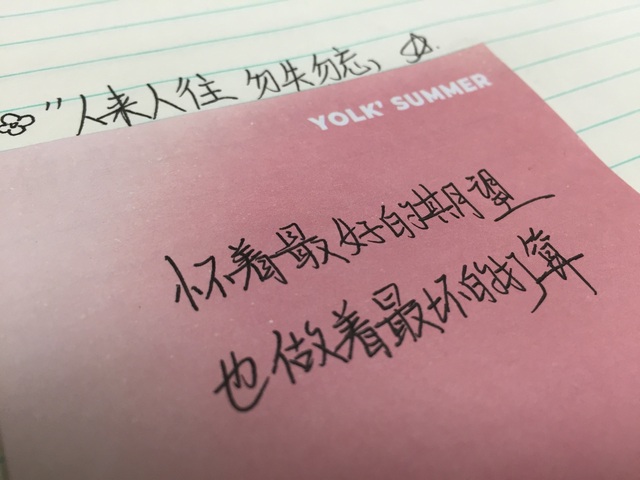 "人来人往 勿失勿忘"
YOLK' SUMMER
怀着最好的期望
也做着最坏的打算